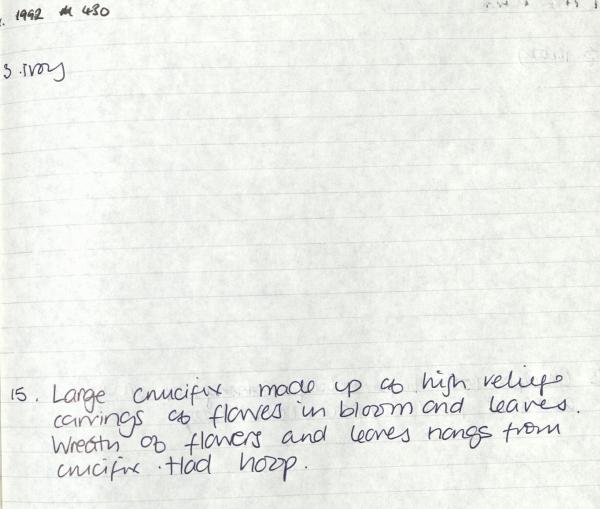 1992 M 430
3. Ivory
15. Large crucifix made up of high relief
carvings of flowes in bloom and leaves.
Wreath of flowers and leaves hangs from
crucifix. Had hoop.